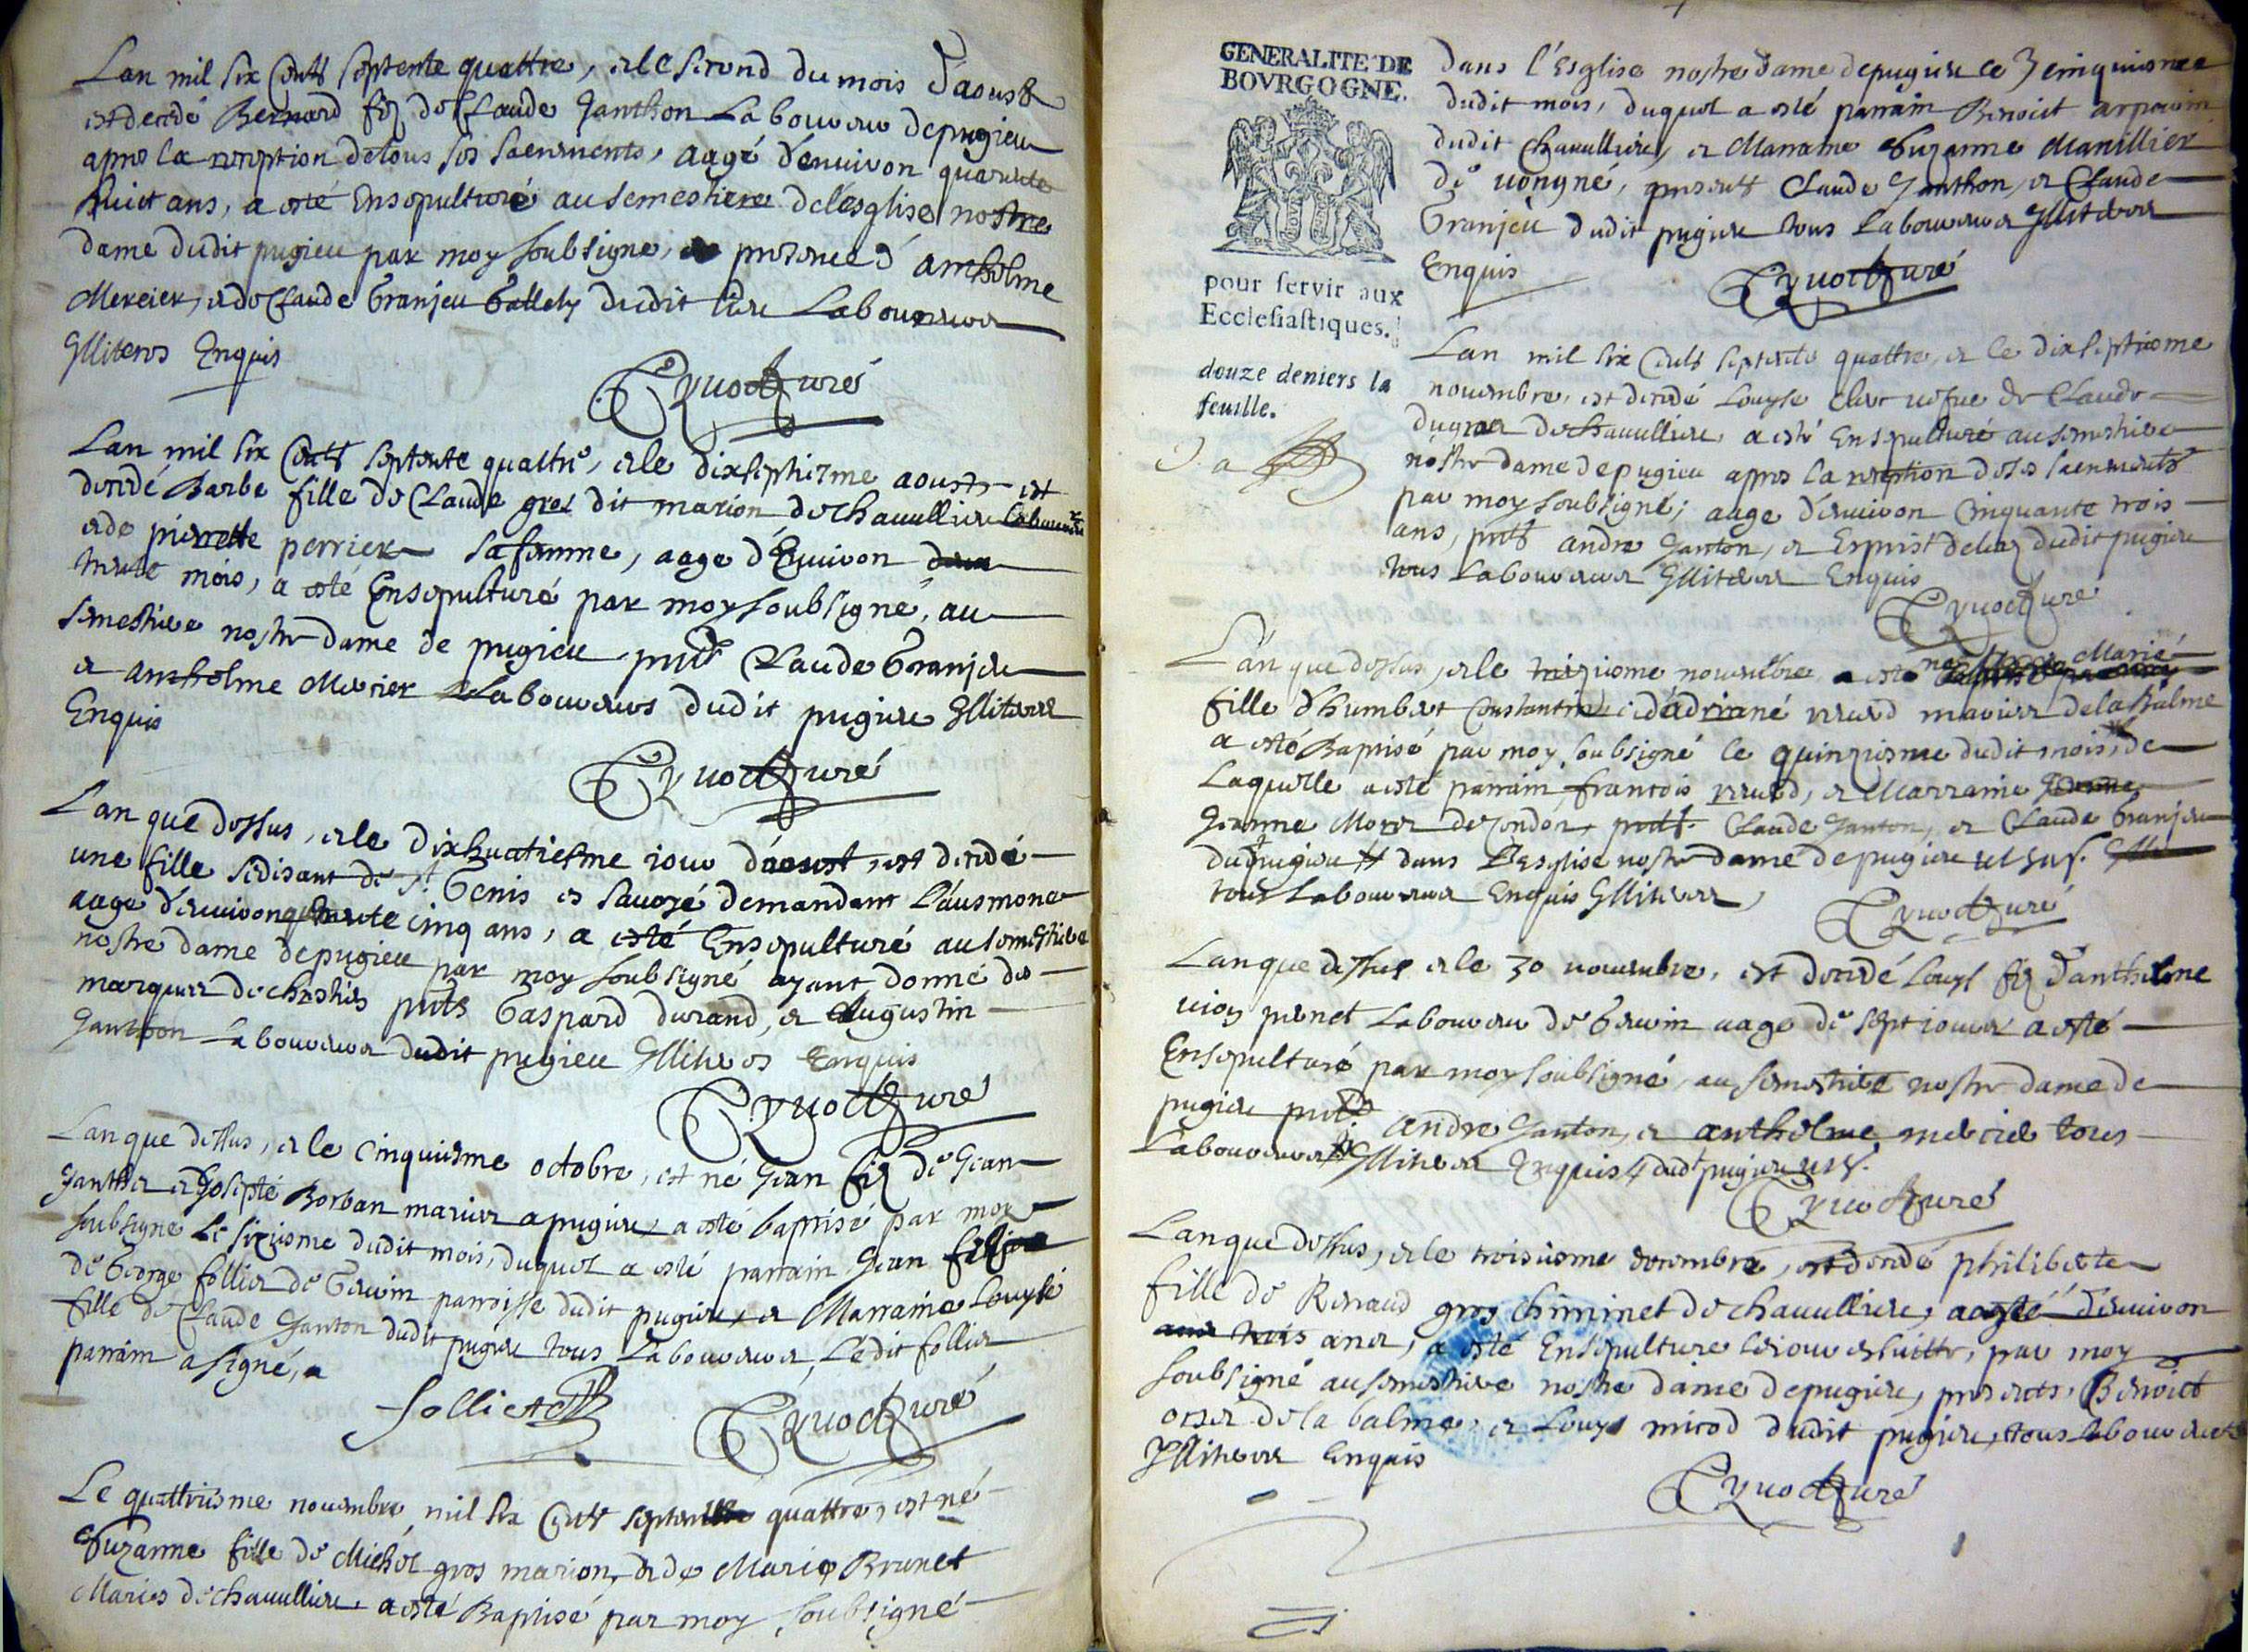 Lan mil six Cents septente quattre, et le second du mois d'aoust
est decedé Bernard fiz de Claude Janthon Laboureur de pugieu
apres la reception de tous ses sacrements, aagé d'environ quarente
huict ans, a esté Ensepulturé au semestiere de lésglise nostre
dame dudit pugieu par moy soubsigné, en presence d'anthelme
Mercier, et de Claude Granjeu dudit lieu Laboureurs
Jlliteres Enquis
Curé
Lan mil six Cents septente quattre, et le dixseptiesme aoust, est
decedé Barbe fille de Claude gros dit marion de chavullieu laboureur
et de pierrette perrier sa femme, aage d'Environ
trente mois, a esté Ensepulturé par moy soubsigné, au
semestiere nostre dame de pugieu pnts Claude Granjeu
et anthelme Mercier Laboureurs dudit pugieu Jlliteres
Enquis
Curé
Lan que dessus, et le dixhuictiesme iour d'aoust, est decedé
une fille se disant de st. Genis en Savoye demandant L'ausmone
aage d'environ quarente cinq ans, a esté Ensepulturé au semestiere
nostre dame de pugieu par moy soubsigné ayant donné des
marques de chrestien pnts Gaspard durand, et Augustin
Janthon Laboureurs dudit pugieu Jlliteres Enquis
Curé
Lan que dessus, et le cinquiesme octobre, est né Jean fiz de Jean
et Josepte Borban mariés a pugieu, a esté baptisé par moy
soubsigné le sixiesme dudit mois, duquel a esté parrain Jean
de George follier de Gevrin parroisse dudit pugieu, et Marraine Louyse
fille de Claude Janton dudit pugieu tous Laboureurs, Ledit follier
parrain a signé,
follier Curé
Le quattriesme novembre mil six Cents septente quattre, est né
Suzanne fille de Michel gros marion, et de Marie Brunet
Mariés de chavullieu, a esté Baptisé par moy soubsigné
GENERALITE DE
BOVRGOGNE.
pour servir aux
Ecclesiastiques.
douze deniers la
feuille.
dans l'Esglise nostre dame de pugieu ce cinquiesme
dudit mois, duquel a esté parrain Benoict
dudit chavullieu, et Marraine Suzanne Manillier
de vongne, presents Claude Janthon, et Claude
Granjeu dudit pugieu tous Laboureurs Jlliteres
Enquis Curé
Lan mil six Cents septente quattre, et le dixseptiesme
novembre, est decedé Louyse vefve de Claude
de chavullieu, a esté Ensepulturé au semestiere
nostre dame de pugieu apres la reception de ses sacrements
par moy soubsigné; aage d'environ Cinquante trois
ans, pnts andre Janton, et dudit pugieu
tous Laboureurs Jlliteres Enquis
Curé
Lan que dessus, et le novembre a esté Marie
fille d'humbert Constantin, et d'adriane mariés de la Balme
a esté Baptisé par moy soubsigné le quinziesme dudit mois, de
Laquelle a esté parrain francois, et Marraine
Jeanne de pnts. Claude Janton, et Claude Granjeu
dudit pugieu dans L'Esglise nostre dame de pugieu
tous Laboureurs Enquis Jlliteres,
Curé
Lan que dessus et le 30 novembre, est decedé Louys fiz d'anthelme
Laboureur de Gevrin aage de sept iours a esté
Ensepulturé par moy soubsigné, au semestiere nostre dame de
pugieu pnts andre Janton, et anthelme mercier tous
Laboureurs Jlliteres Enquis dudt pugieu
Curé
Lan que dessus, et le troisiesme decembre, est decedé philiberte
fille de Renaud gros chiminet de chavullieu, aagé d'environ
trois ans, a esté Ensepulture le iour et suitte, par moy
soubsigné au semestiere nostre dame de pugieu, presents, Benoict
de la balme, et Louys micod dudit pugieu, tous Laboureurs
Jlliteres Enquis
Curé